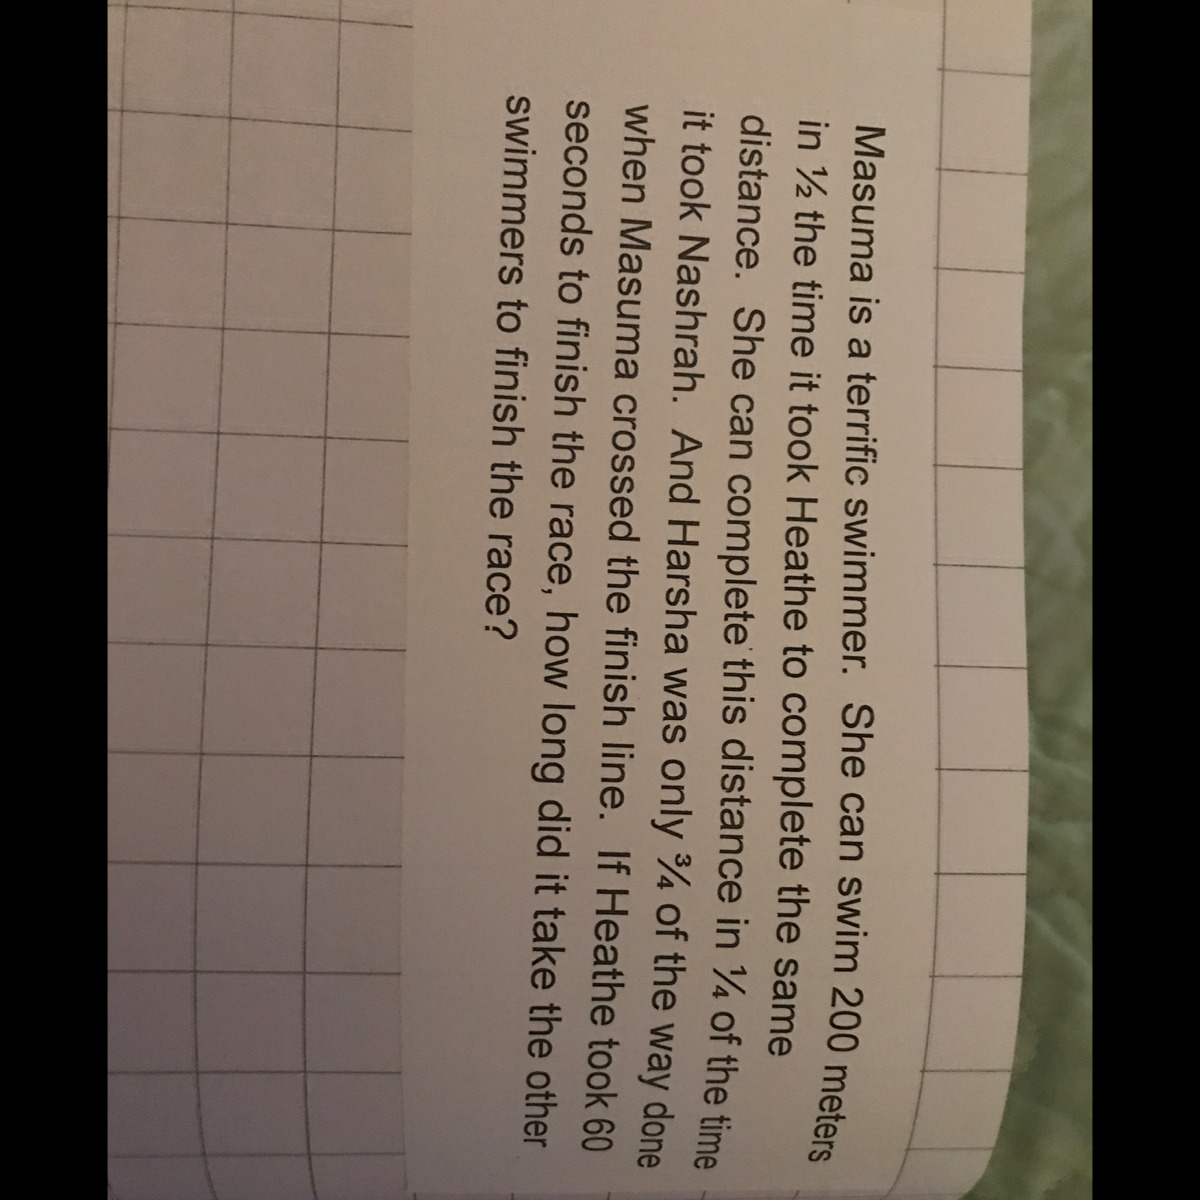 Masuma is a terrific swimmer. She can swim 200 meters
in ½ the time it took Heathe to complete the same
distance. She can complete this distance in ¼ of the time
it took Nashrah. And Harsha was only ¾ of the way done
when Masuma crossed the finish line. If Heathe took 60
seconds to finish the race, how long did it take the other
swimmers to finish the race?